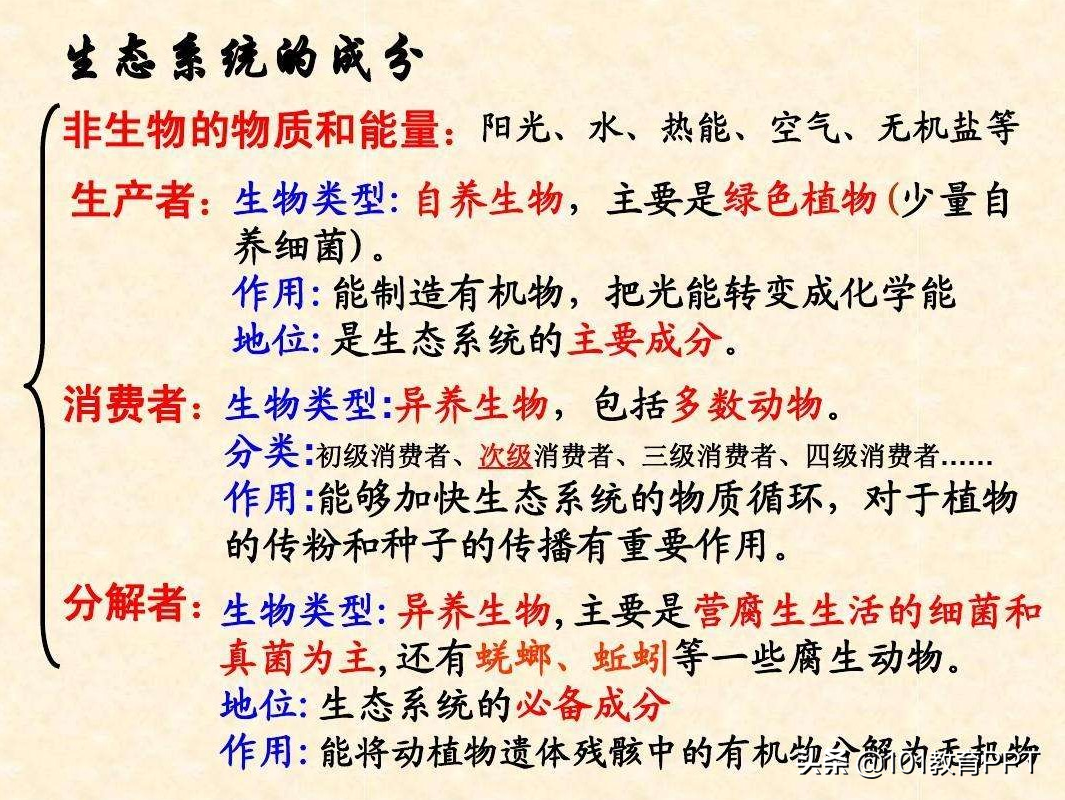 生态系统的成分
非生物的物质和能量：阳光、水、热能、空气、无机盐等
生产者：生物类型：自养生物，主要是绿色植物(少量自
养细菌)。
作用：能制造有机物，把光能转变成化学能
地位：是生态系统的主要成分。
消费者：生物类型:异养生物，包括多数动物。
分类:初级消费者、次级消费者、三级消费者、四级消费者……
作用:能够加快生态系统的物质循环，对于植物
的传粉和种子的传播有重要作用。
分解者：生物类型：异养生物,主要是营腐生生活的细菌和
真菌为主,还有蜣螂、蚯蚓等一些腐生动物。
地位：生态系统的必备成分
作用：能将动植物遗体残骸中的有机物分解为无机物
头条 @101教育PPT